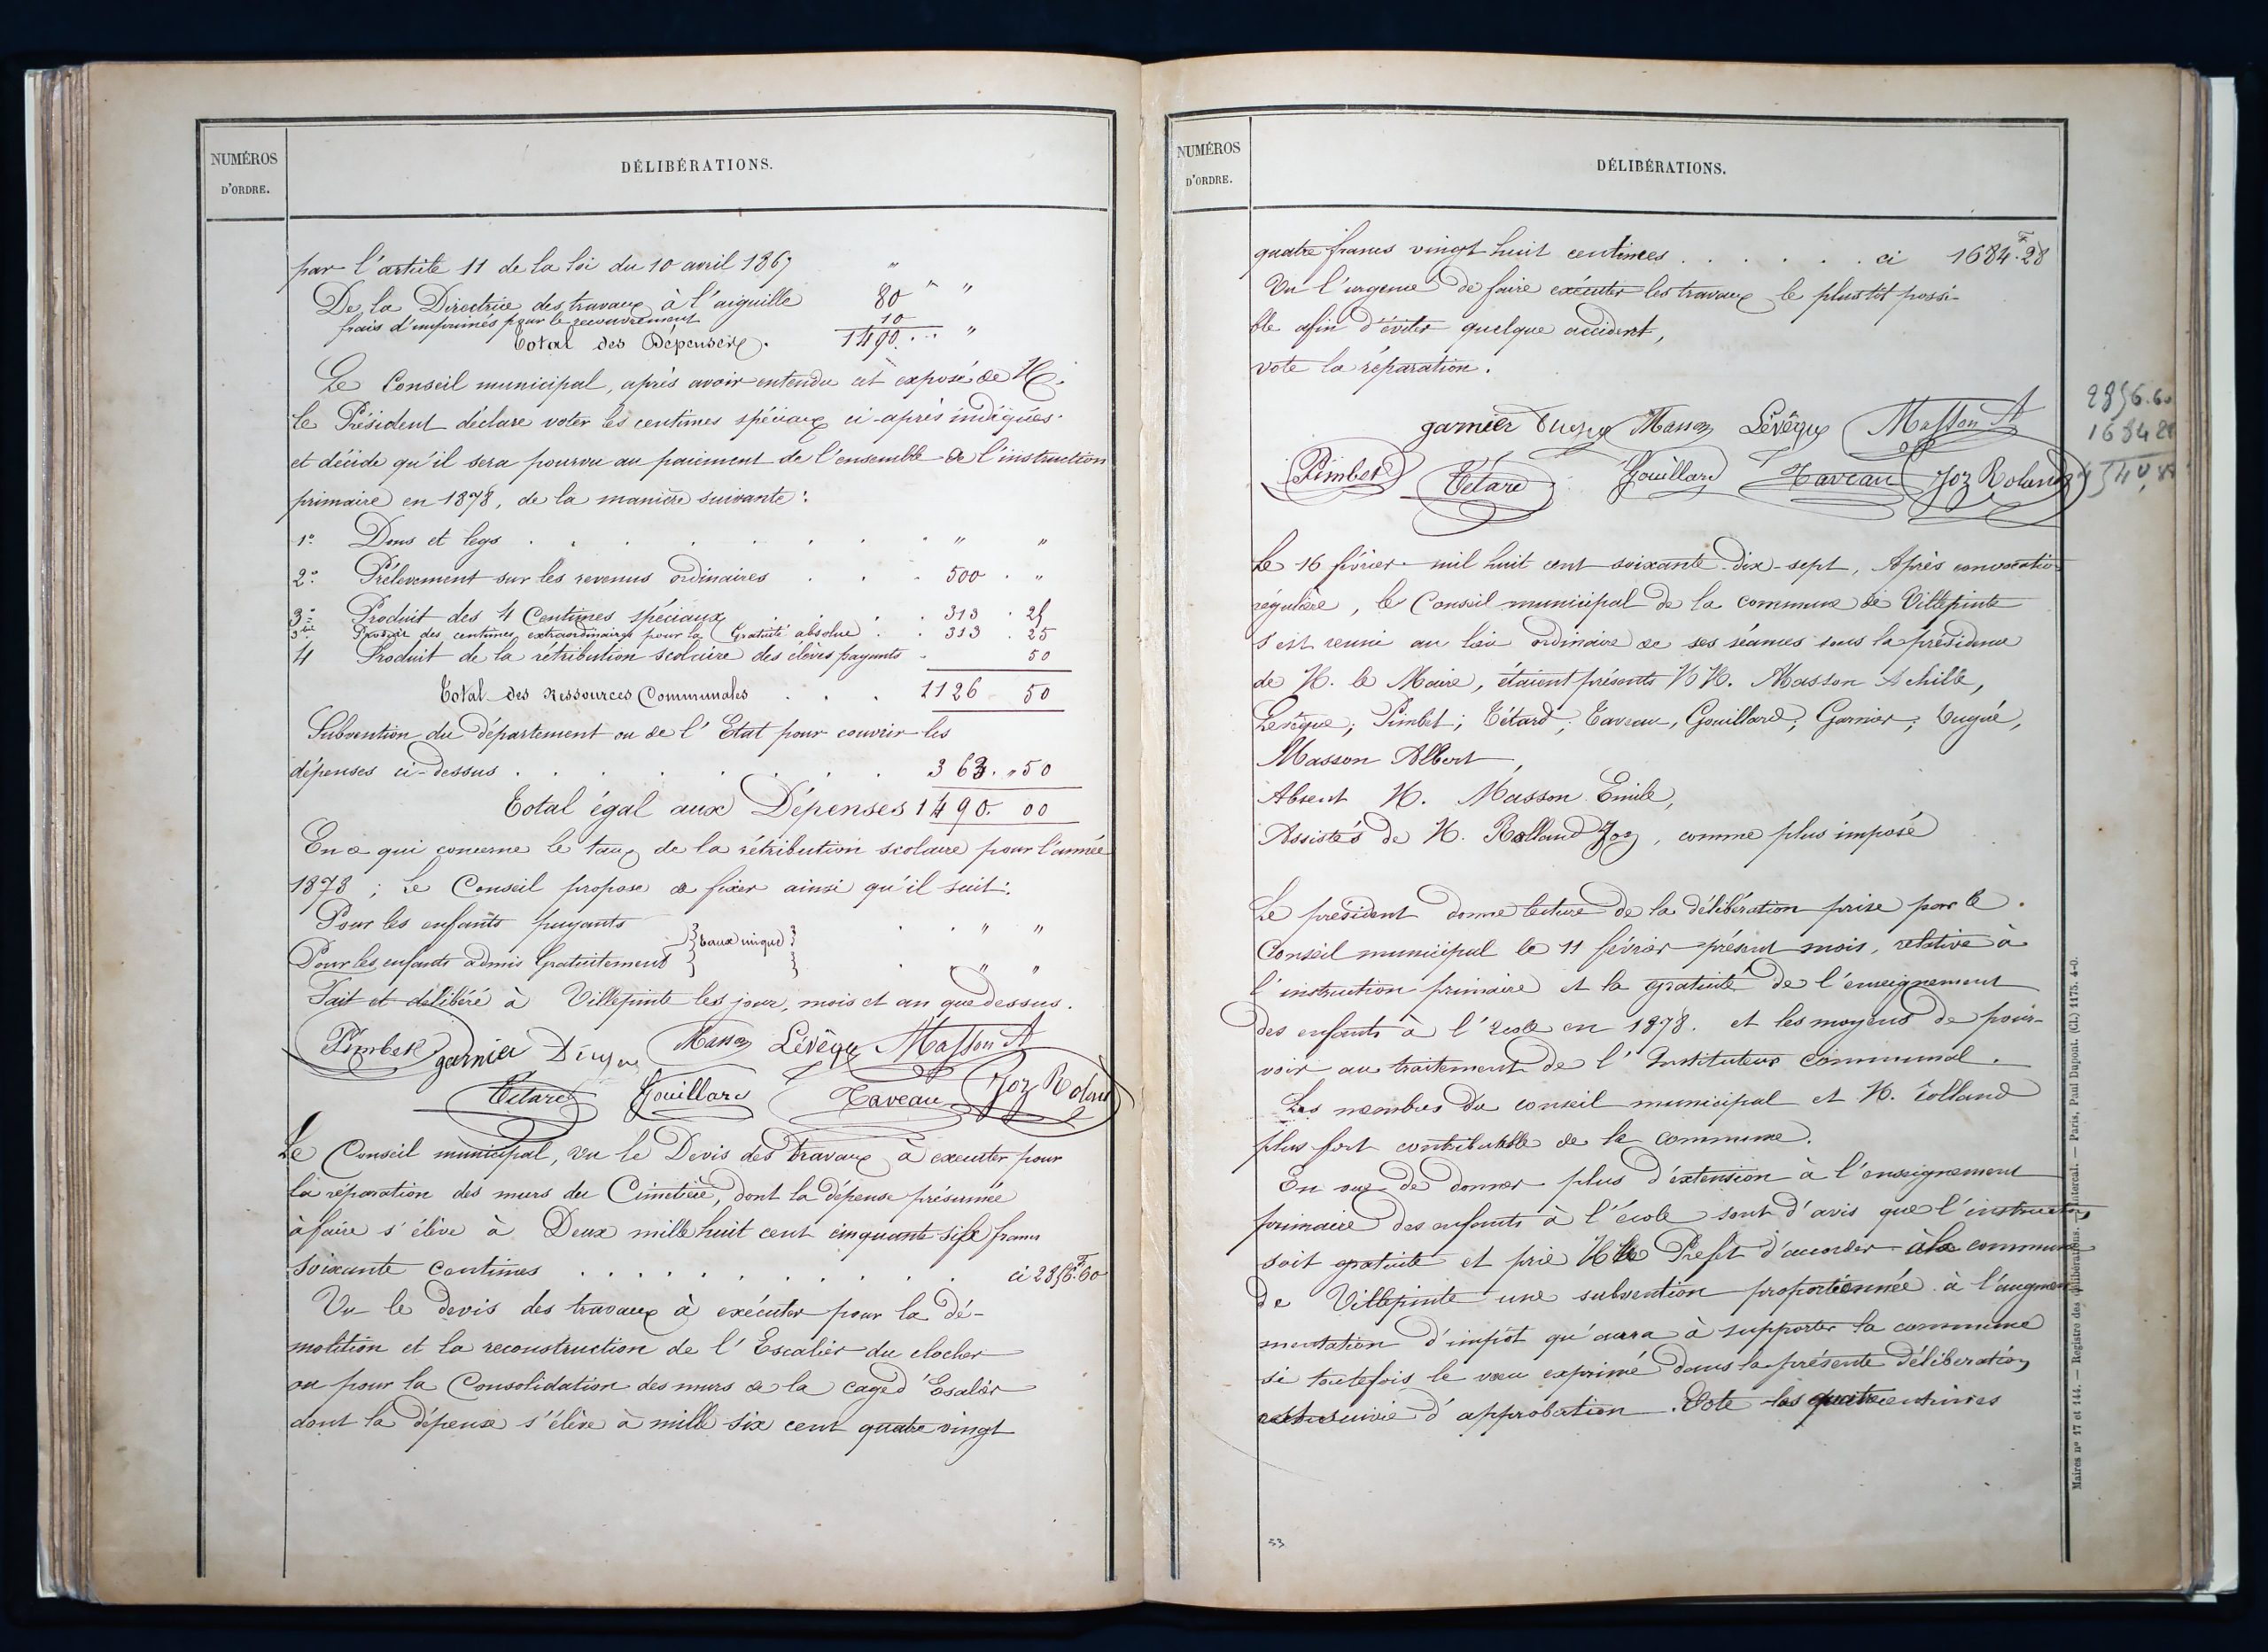 NUMÉROS
D'ORDRE.
DÉLIBÉRATIONS.
par l'article 11 de la loi du 10 avril 1867 "
De la Directrice des travaux à l'aiguille 80 " "
frais d'imprimés pour le recouvrement 10
Total des Dépenses. 1490... "
Le Conseil municipal, après avoir entendu cet exposé de M.
le Président déclare voter les centimes spéciaux ci-après indiqués.
et décide qu'il sera pourvu au paiement de l'ensemble de l'instruction
primaire en 1878, de la manière suivante :
1° Dons et legs . . . . . . . " "
2° Prélevement sur les revenus ordinaires . . . 500 . "
3° Produit des 4 Centimes spéciaux . . . 313 . 25
3bis Produit des centimes extraordinaires pour la Gratuité absolue . . 313 . 25
4 Produit de la rétribution scolaire des élèves payants . 50
Total des Ressources Communales . . . 1126 50
Subvention du département ou de l'Etat pour couvrir les
dépenses ci-dessus . . . . . . . 363. " 50
Total égal aux Dépenses 1490. 00
En ce qui concerne le taux de la rétribution scolaire pour l'année
1878 ; Le Conseil propose de fixer ainsi qu'il suit :
Pour les enfants payants } taux unique } . . " "
Pour les enfants admis Gratuitement . . " "
Fait et délibéré à Villepinte les jour, mois et an que dessus.
Pimbet garnier Masson Lévêque Masson A
Tétard Gouillard Taveau Joz Roland
Le Conseil municipal, vu le Devis des travaux à executer pour
la réparation des murs du Cimetière, dont la dépense présumée
à faire s'élève à Deux mille huit cent cinquante six francs
soixante centimes . . . . . . . . . . . ci 2856F.60
Vu le devis des travaux à exécuter pour la dé-
molition et la reconstruction de l'Escalier du clocher
ou pour la Consolidation des murs de la cage d'Esalier
dont la dépense s'élève à mille six cent quatre vingt
NUMÉROS
D'ORDRE.
DÉLIBÉRATIONS.
quatre francs vingt huit centimes . . . . . . . ci 1684F.28
Vu l'urgence de faire exécuter les travaux le plustôt possi-
ble afin d'éviter quelque accident,
vote la réparation.
garnier Masson Lévêque Masson A
Pimbet Tétard Gouillard Taveau Joz Roland
2856.60
1684 28
4540,88
Le 16 février mil huit cent soixante-dix-sept, Après convocation
régulière, le Conseil municipal de la commune de Villepinte
s'est reuni au lieu ordinaire de ses séances sous la présidence
de M. le Maire, étaient présents MM. Masson Achille,
Levêque; Pimbet; Tétard; Taveau, Gouillard; Garnier; Dugué,
Masson Albert,
Absent M. Masson Emile,
Assistés de M. Rolland Joz, comme plus imposé
Le président donne lecture de la délibération prise par le
Conseil municipal le 11 février présent mois, relative à
l'instruction primaire et la gratuité de l'enseignement
des enfants à l'école en 1878. et les moyens de pour-
voir au traitement de l'Instituteur communal.
Les membres du conseil municipal et M. Rolland
plus fort contribuable de la commune.
En vue de donner plus d'extension à l'enseignement
primaire des enfants à l'école sont d'avis que l'instruction
soit gratuite et prie M le Prefet d'accorder à la commune
de Villepinte une subvention proportionnée à l'augmen
mentation d'impôt qu'aura à supporter la commune
si toutefois le vœu exprimé dans la présente Délibération
est suivie d'approbation. Vote les quatre centimes
53
Maires nos 17 et 144. — Registre des délibérations. Intercal. — Paris, Paul Dupont. (Cl.) 1175. 4-0.